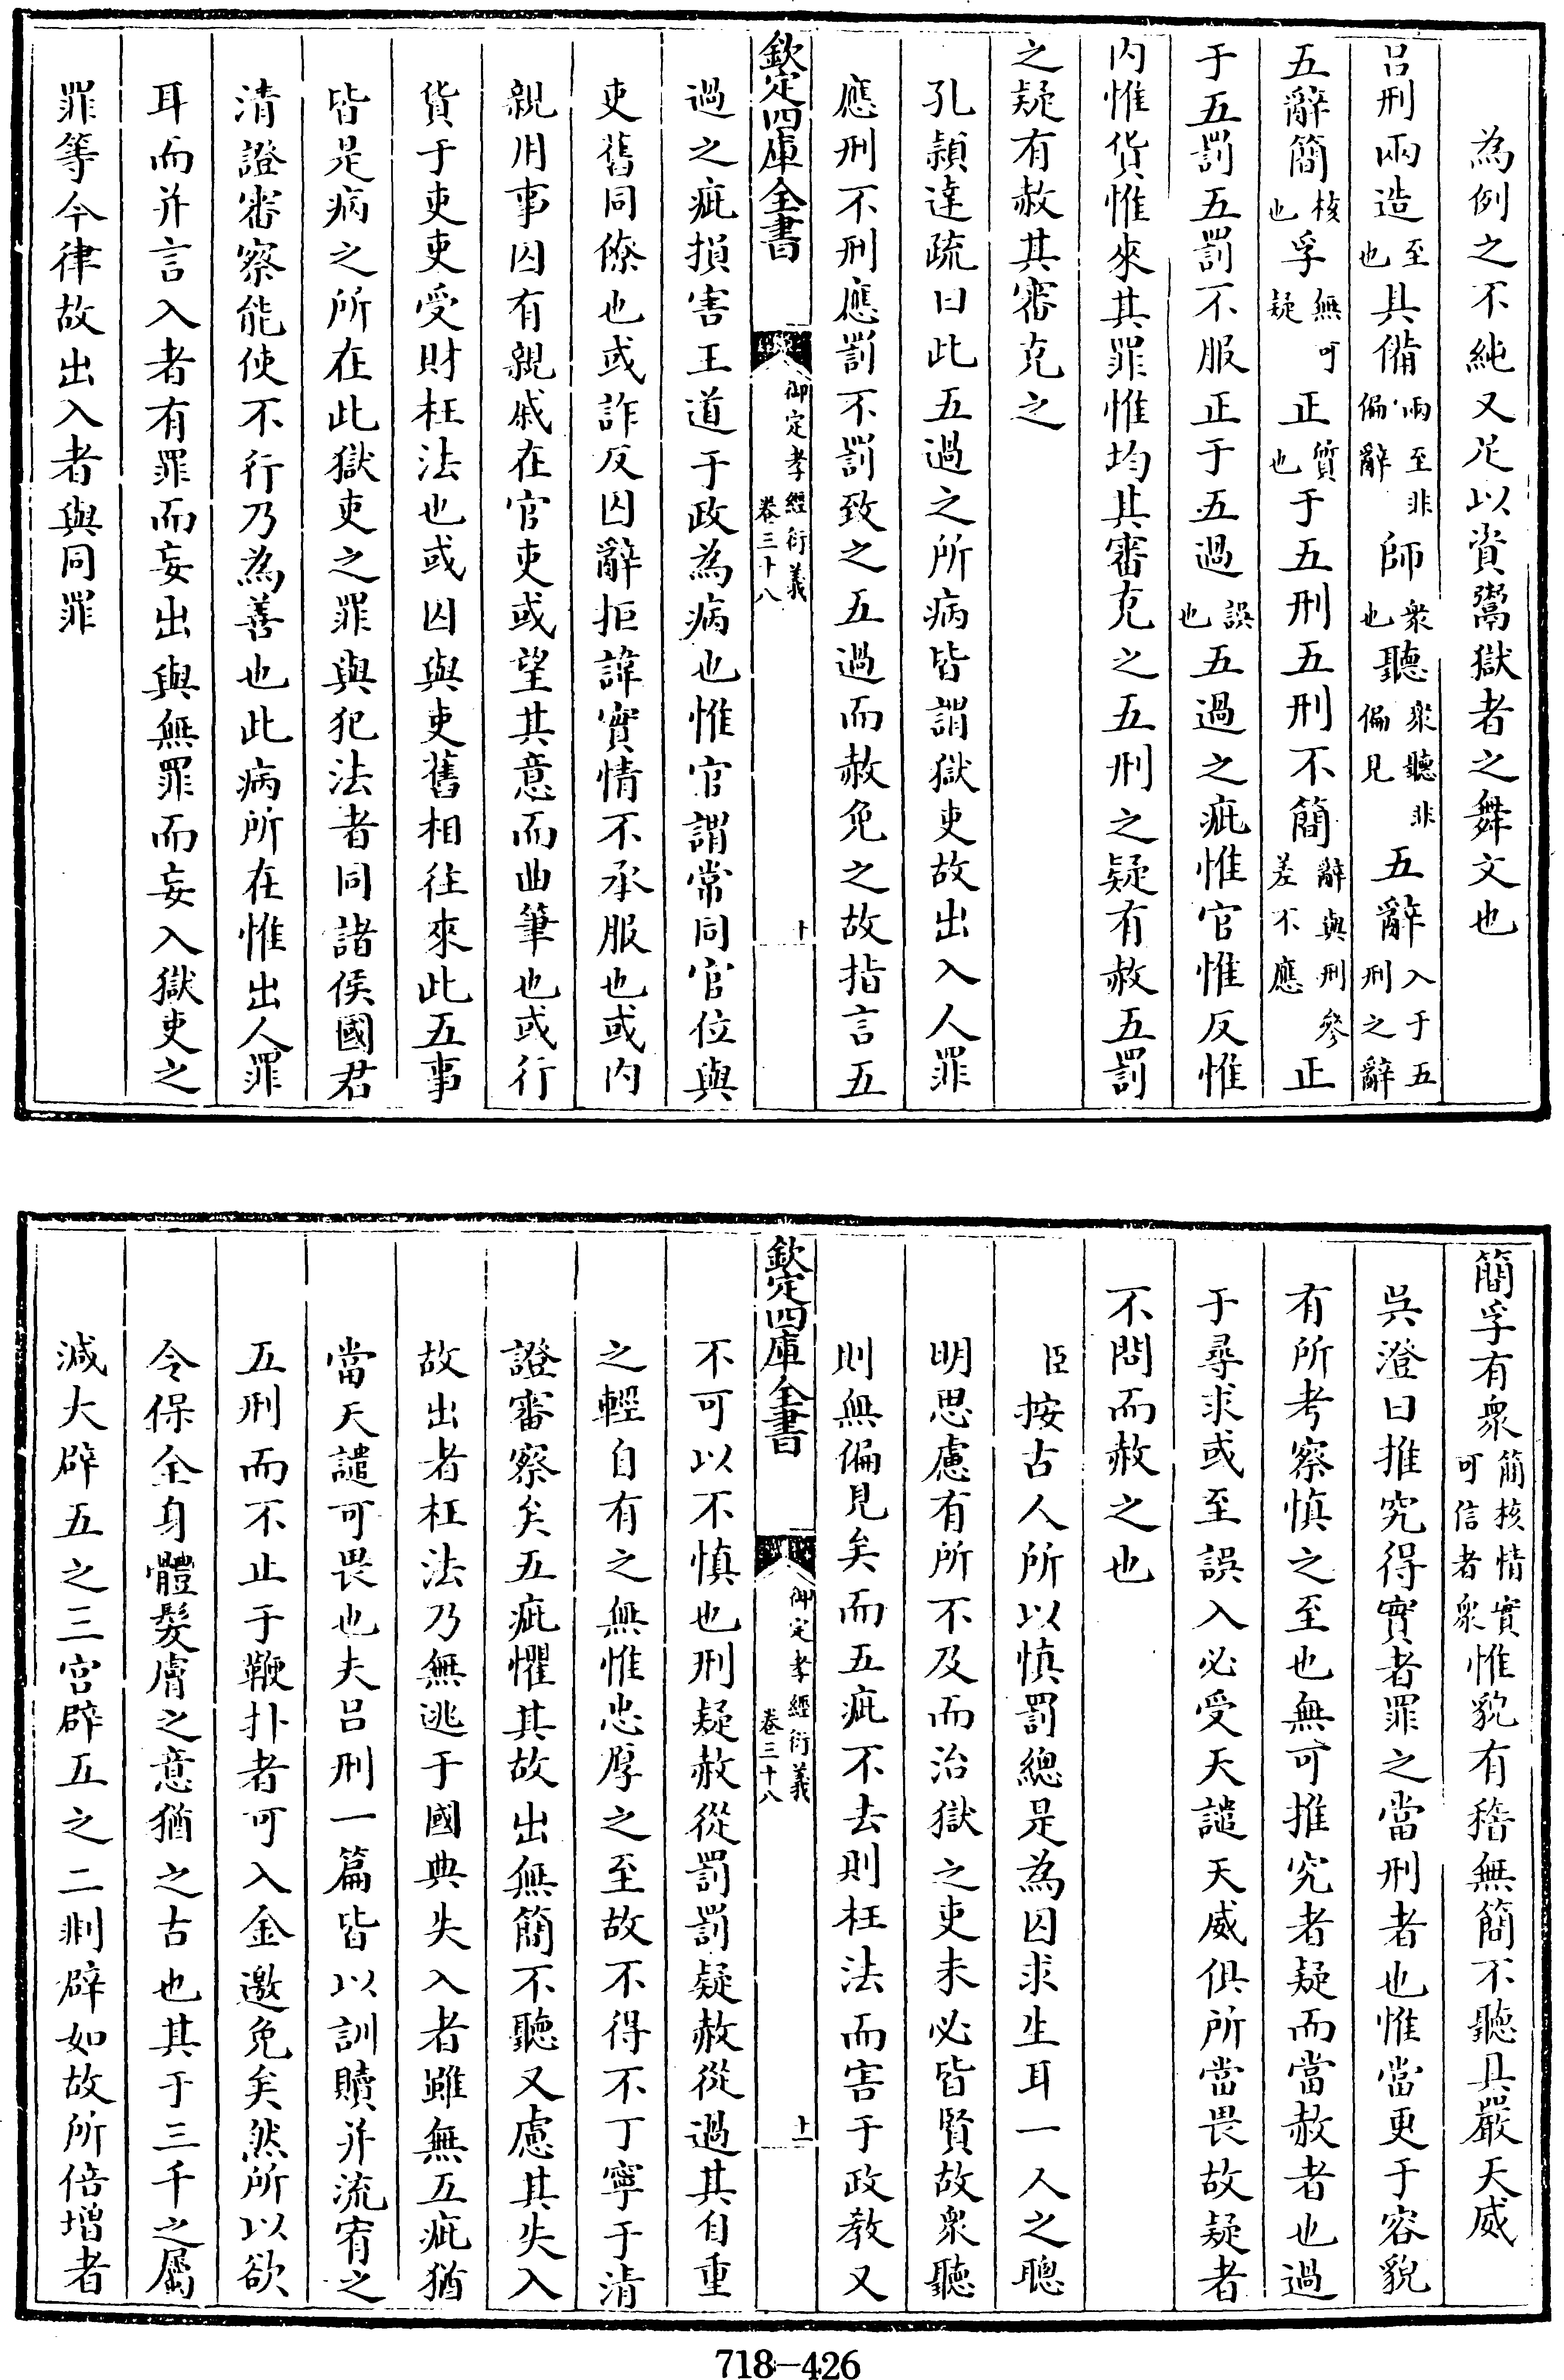 為例之不純又足以資鬻獄者之舞文也
呂刑兩造至也具備兩至非偏辭師衆也聽衆聽非偏見五辭入于五刑之辭
五辭簡核也孚無可疑正質也于五刑五刑不簡辭與刑參差不應正
于五罰五罰不服正于五過誤也五過之疵惟官惟反惟
内惟貨惟來其罪惟均其審克之五刑之疑有赦五罰
之疑有赦其審克之
孔頴達疏曰此五過之所病皆謂獄吏故出入人罪
應刑不刑應罰不罰致之五過而赦免之故指言五
欽定四庫全書
御定孝經衍義
卷三十八
十
過之疵損害王道于政為病也惟官謂常同官位與
吏舊同僚也或詐反囚辭拒諱實情不承服也或内
親用事囚有親戚在官吏或望其意而曲筆也或行
貨于吏吏受財枉法也或囚與吏舊相往來此五事
皆是病之所在此獄吏之罪與犯法者同諸侯國君
清證審察能使不行乃為善也此病所在惟出人罪
耳而并言入者有罪而妄出與無罪而妄入獄吏之
罪等今律故出入者與同罪
簡孚有衆簡核情實可信者衆惟貌有稽無簡不聽具嚴天威
吳澄曰推究得實者罪之當刑者也惟當更于容貌
有所考察慎之至也無可推究者疑而當赦者也過
于尋求或至誤入必受天譴天威俱所當畏故疑者
不問而赦之也
臣按古人所以慎罰總是為囚求生耳一人之聰
明思慮有所不及而治獄之吏未必皆賢故衆聽
則無偏見矣而五疵不去則枉法而害于政教又
欽定四庫全書
御定孝經衍義
卷三十八
十一
不可以不慎也刑疑赦從罰罰疑赦從過其自重
之輕自有之無惟忠厚之至故不得不丁寧于清
證審察矣五疵懼其故出無簡不聽又慮其失入
故出者枉法乃無逃于國典失入者雖無五疵猶
當天譴可畏也夫呂刑一篇皆以訓贖并流宥之
五刑而不止于鞭扑者可入金邀免矣然所以欲
令保全身體髮膚之意猶之古也其于三千之屬
減大辟五之三宫辟五之二剕辟如故所倍增者
718-426